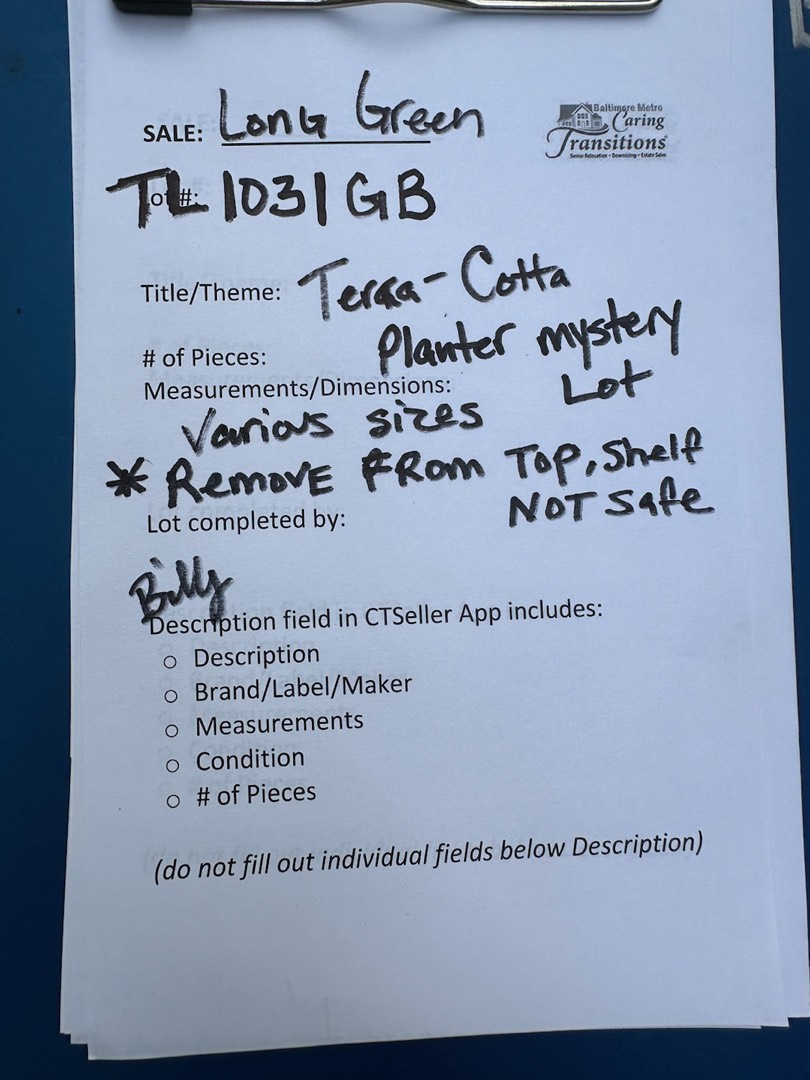 SALE: Long Green
Baltimore Metro
Caring
Transitions
Senior Relocation • Downsizing • Estate Sales
Lot #: TL 1031 GB
Title/Theme: Terra-Cotta
# of Pieces: Planter mystery
Measurements/Dimensions: Lot
Various sizes
* Remove FRom Top, Shelf
Lot completed by: NOT Safe
Billy
Description field in CTSeller App includes:
o Description
o Brand/Label/Maker
o Measurements
o Condition
o # of Pieces
(do not fill out individual fields below Description)